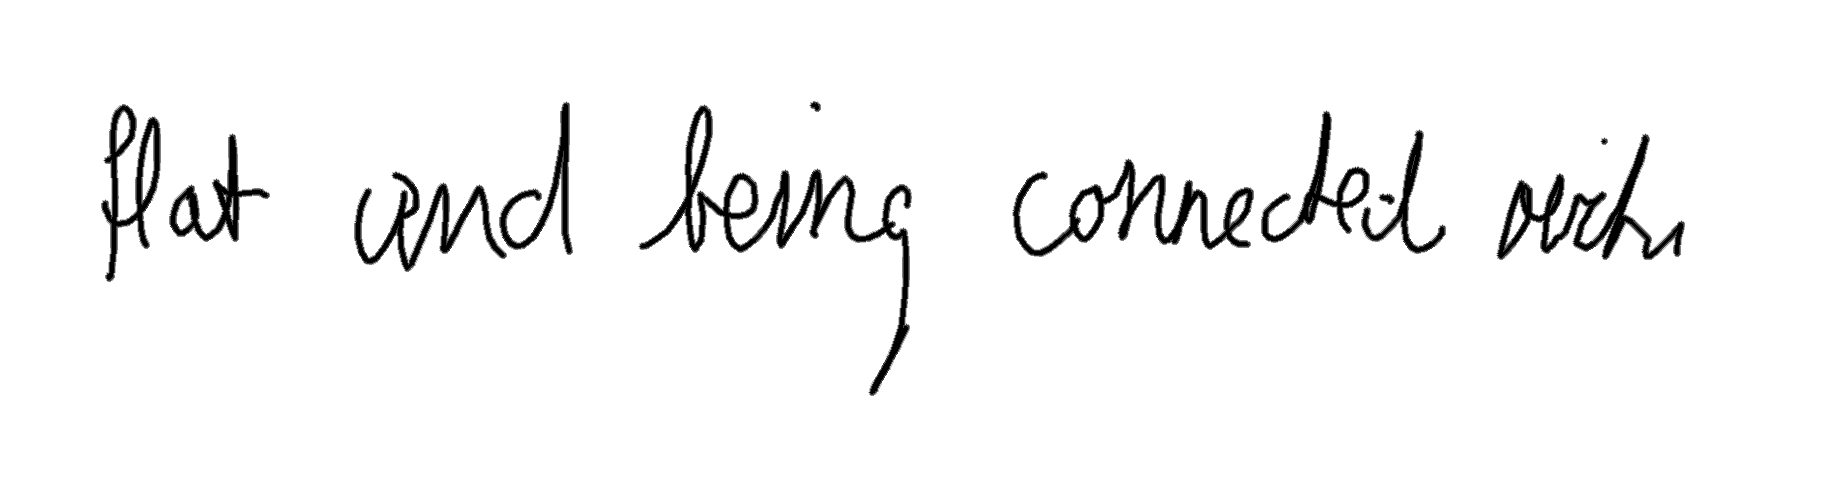 flat and being connected with